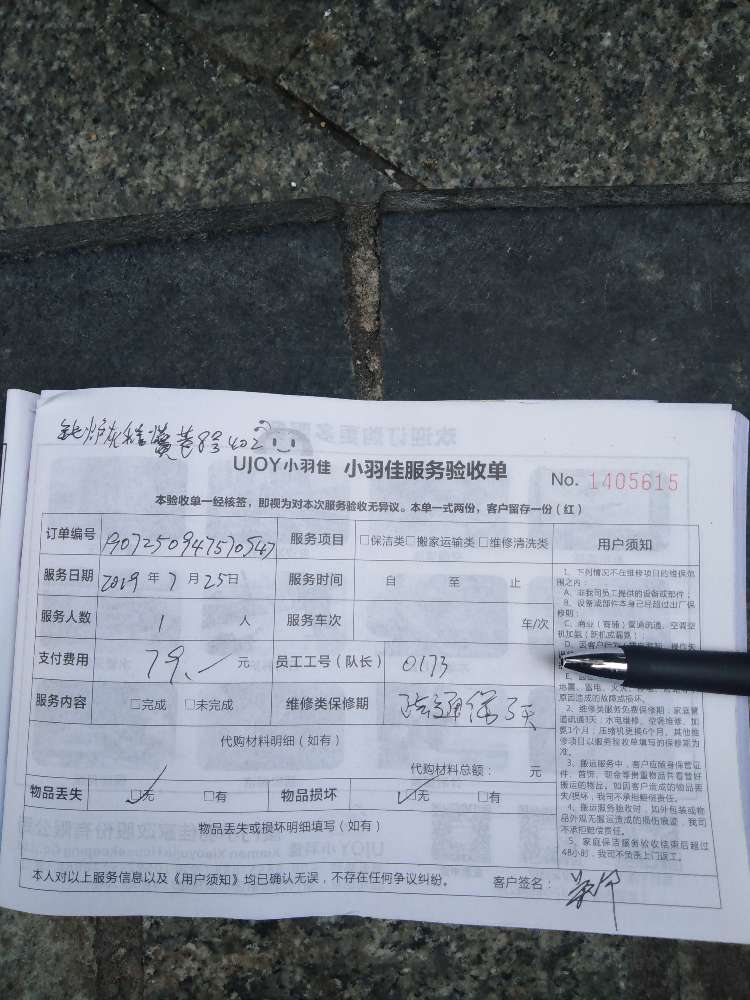 402
UJOY小羽佳 小羽佳服务验收单
No. 1405615
本验收单一经核签，即视为对本次服务验收无异议。本单一式两份，客户留存一份（红）
订单编号 1907250947570547 服务项目 □保洁类□搬家运输类□维修清洗类
服务日期 2019年7月25日 服务时间 自 至 止
服务人数 1 人 服务车次 车/次
支付费用 79.- 元 员工工号（队长） 0173
服务内容 □完成 □未完成 维修类保修期 疏通保3天
代购材料明细（如有）
代购材料总额： 元
物品丢失 □无 □有 物品损坏 □无 □有
物品丢失或损坏明细填写（如有）
本人对以上服务信息以及《用户须知》均已确认无误，不存在任何争议纠纷。 客户签名：
用户须知
1、下列情况不在维修项目的维保范
围之内：
A、非我司员工提供的设备或部件；
B、设备或部件本身已经超过出厂保
修期；
C、商业（商铺）管道疏通、空调空
机加氨（新机或漏氨）；
地震、雷电、火
原因造成的故障或损坏。
2、维修类服务免费保修期：家庭管
道疏通3天；水电维修、空调维修、加
氨1个月；压缩机更换6个月，其他维
修项目以服务验收单填写的保修期为
准。
3、搬运服务中，客户应随身保管证
件、首饰、现金等贵重物品并看管好
搬运的物品。如因客户造成的物品丢
失/损坏，我司不承担赔偿责任。
4、搬运服务验收时，如外包装或物
品外观无搬运造成的损伤痕迹，我司
不承担赔偿责任。
5、家庭保洁服务验收结束后超过
48小时，我司不负责上门返工。